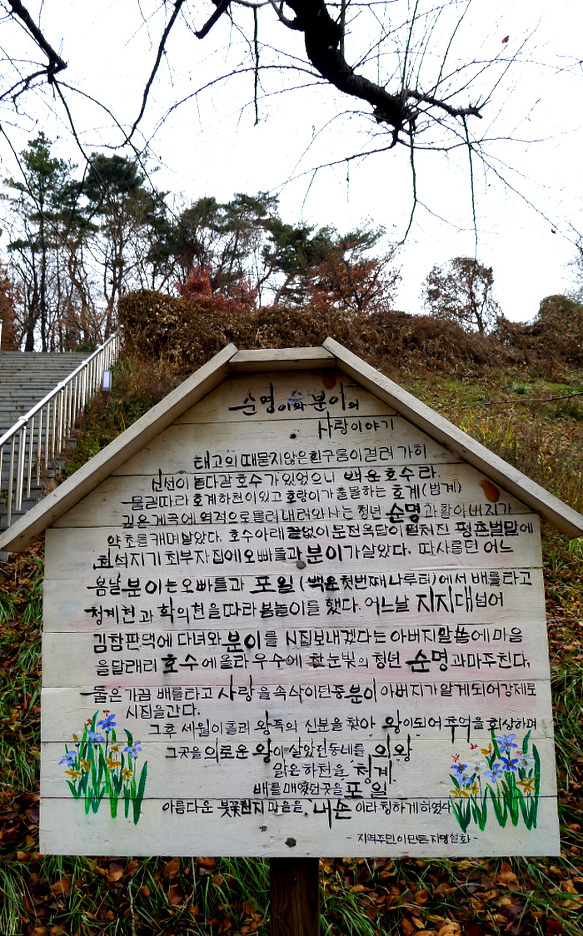 순명이와 분이의
사랑이야기
태고의 때묻지않은 흰구름이 걸려 가히
신선이 놀다갈 호수가 있었으니 백운호수라.
물길따라 호계하천이 있고 호랑이가 출몰하는 호계(범계)
깊은 계곡에 역적으로 몰려 내려와 사는 청년 순명과 활아버지가
약초를 캐며 살았다. 호수아래 끝없이 문전옥답이 펼쳐진 평촌벌말에
천석지기 최부자집에 오빠들과 분이가 살았다. 따사롭던 어느
봄날 분이는 오빠들과 포일(백운첫번째나루터)에서 배를 타고
청계천과 학의천을 따라 봄놀이를 했다. 어느날 지지대 넘어
김참판댁에 다녀와 분이를 시집보내겠다는 아버지말씀에 마음
을 달래러 호수에 올라 우수에 찬 눈빛의 청년 순명과 마주친다.
둘은 가끔 배를 타고 사랑을 속삭이던중 분이 아버지가 알게되어 강제로
시집을 간다.
그후 세월이 흘러 왕족의 신분을 찾아 왕이되어 추억을 회상하며
그곳을 의로운 왕이 살았던 동네를 의왕
맑은 하천을 청계
배를 매었던 곳을 포일
아름다운 붓꽃천지 마을을 내손이라 칭하게 하였다
~ 지역주민이 만든 지명설화 ~